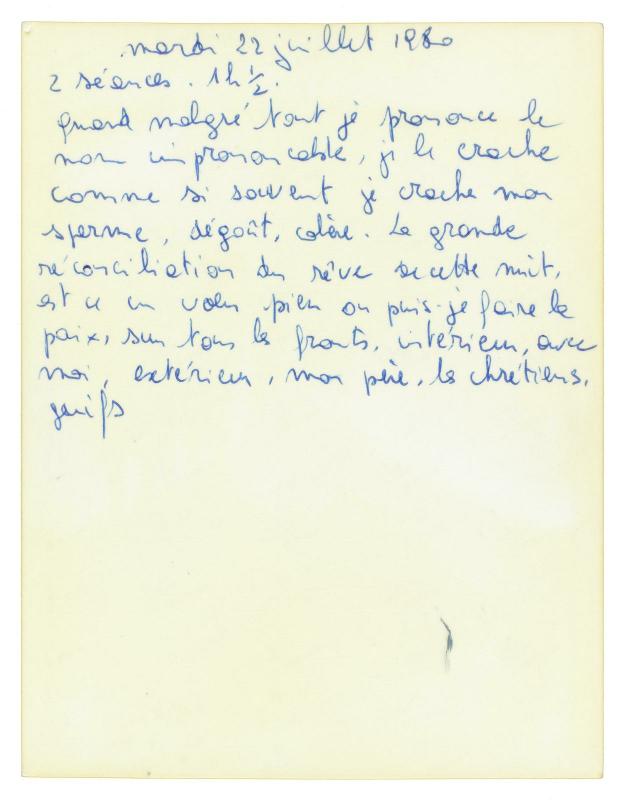 mardi 22 juillet 1980
2 séances. 1h ½.
Quand malgré tout je prononce le
nom imprononçable, je le crache
comme si souvent je crache mon
sperme, dégoût, colère. La grande
réconciliation du rêve de cette nuit,
est ce un voeu pieu ou puis-je faire la
paix, sur tous les fronts, intérieur, avec
moi, extérieur, mon père, les chrétiens,
juifs